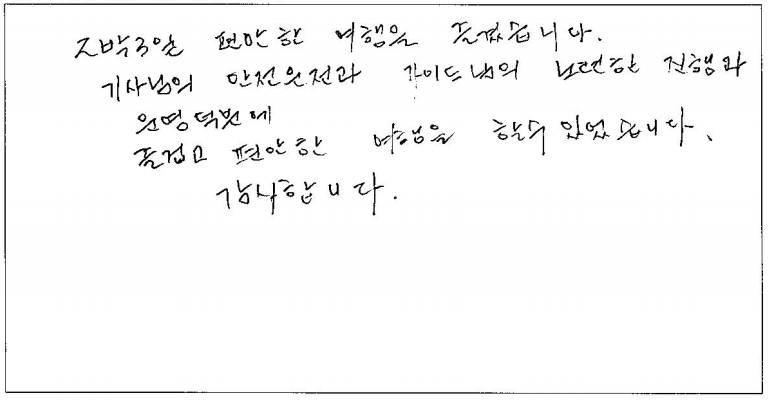 2박3일 편안한 여행을 즐겼습니다.
기사님의 안전운전과 가이드님의 노련한 진행과
운영덕분에
즐겁고 편안한 여행을 할수 있었습니다.
감사합니다.